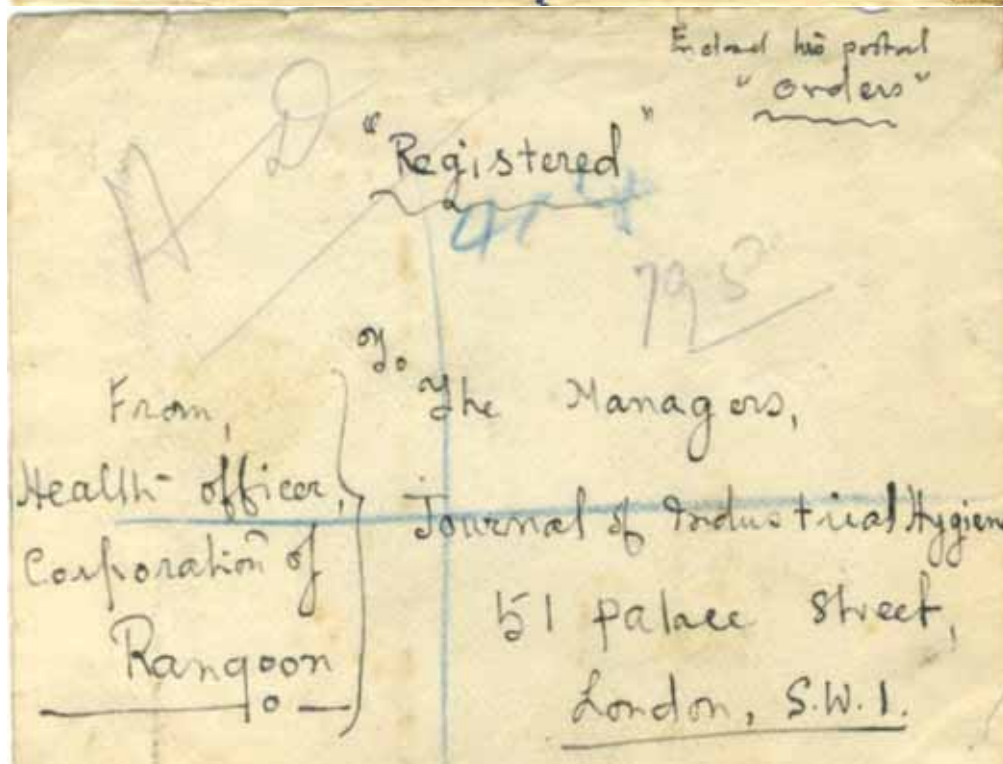 Enclosed two postal
"orders"
"Registered"
A D
From,
Health officer,
Corporation of
Rangoon
To
The Managers,
Journal of Industrial Hygien
51 palace Street,
London, S.W.1.